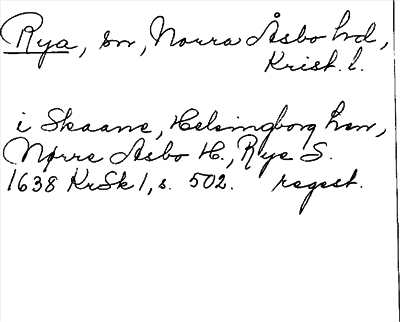 Rya, sn, Norra Åsbo hd,
Krist. l.
i Skaane, Helsingborg hsn,
Nørre Asbo H., Rye S.
1638 KrSk 1, s. 502. regest.